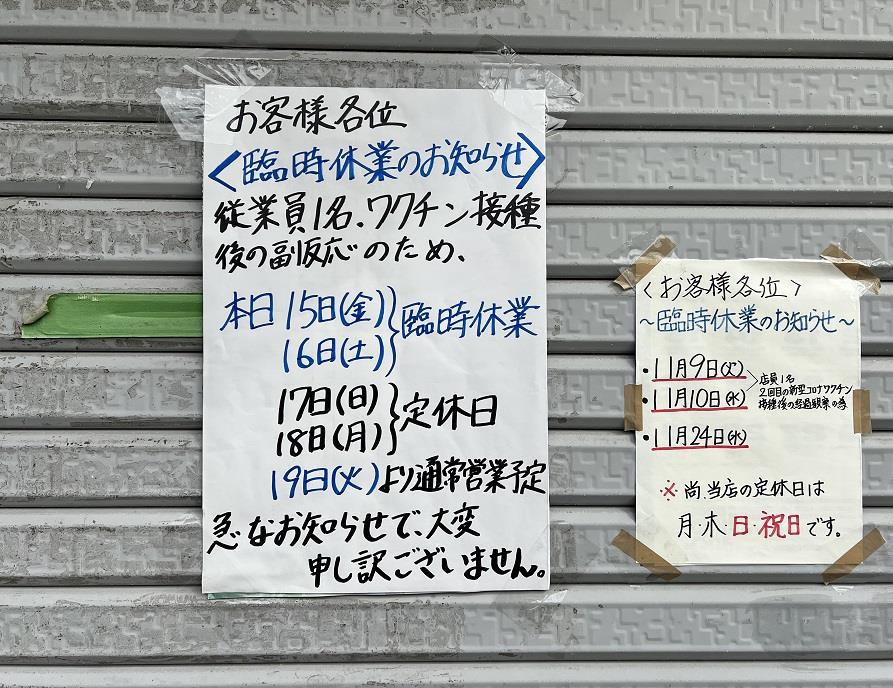 お客様各位
〈臨時休業のお知らせ〉
従業員1名、ワクチン接種
後の副反応のため、
本日15日(金)
16日(土)
臨時休業
17日(日)
18日(月)
定休日
19日(火)より通常営業予定
急なお知らせで、大変
申し訳ございません。
〈お客様各位〉
～臨時休業のお知らせ～
・11月9日(火)
・11月10日(水)
店員1名
2回目の新型コロナワクチン
接種後の経過観察の為
・11月24日(水)
※尚、当店の定休日は
月・木・日・祝日です。